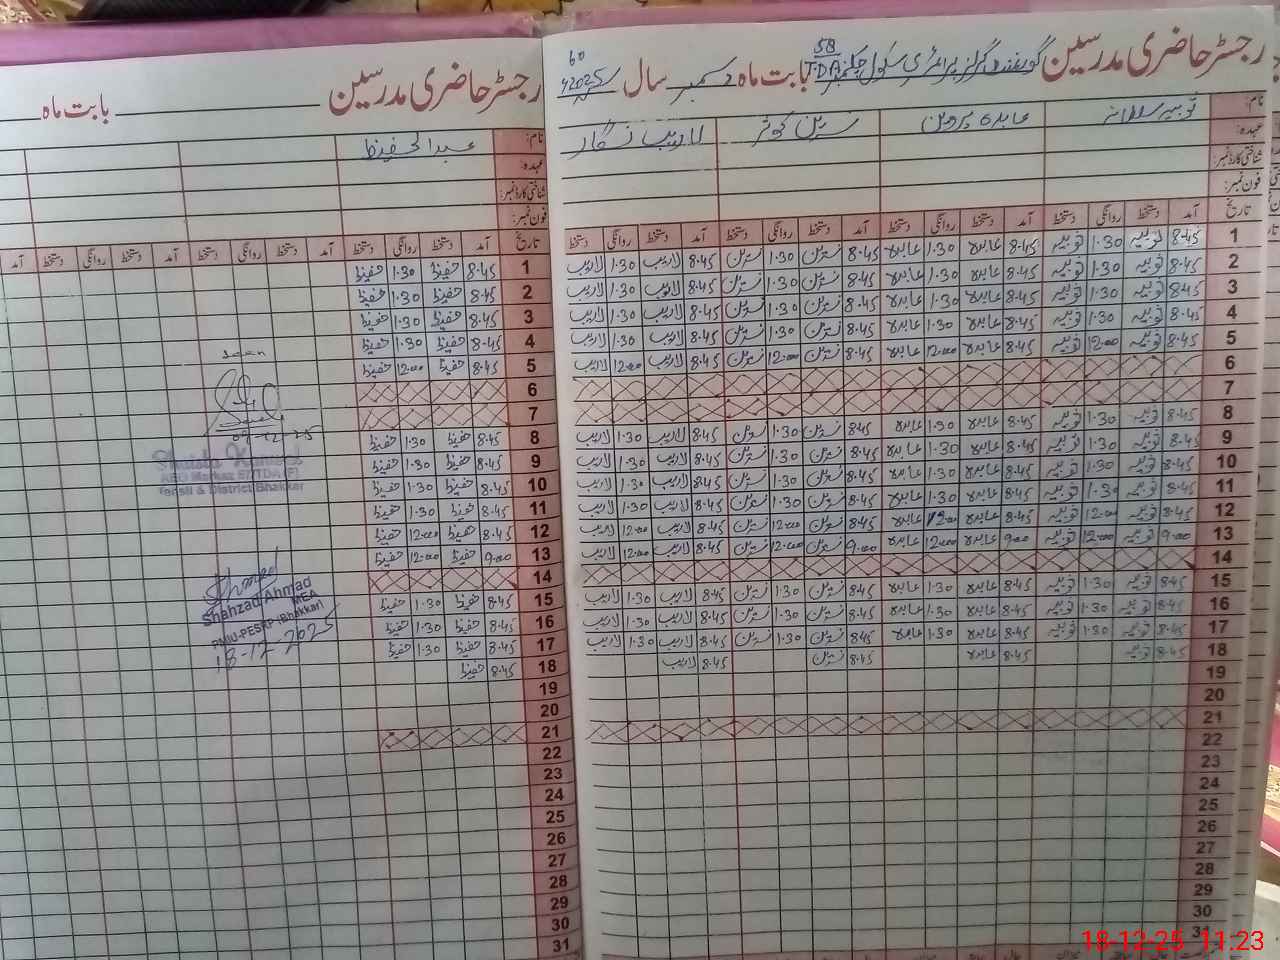 رجسٹر حاضری مدرسین گورنمنٹ گرلز پرائمری سکول چک نمبر 58 T.D.A بابت ماہ دسمبر سال 2025ء
60
نام: ثوبیہ سلطانہ عابدہ پروین نسرین کوثر لاریب نگار
عہدہ:
شناختی کارڈ نمبر:
فون نمبر:
تاریخ آمد دستخط روانگی دستخط آمد دستخط روانگی دستخط آمد دستخط روانگی دستخط آمد دستخط روانگی دستخط
1 8.45 ثوبیہ 1.30 ثوبیہ 8.45 عابدہ 1.30 عابدہ 8.45 نسرین 1.30 نسرین 8.45 لاریب 1.30 لاریب
2 8.45 ثوبیہ 1.30 ثوبیہ 8.45 عابدہ 1.30 عابدہ 8.45 نسرین 1.30 نسرین 8.45 لاریب 1.30 لاریب
3 8.45 ثوبیہ 1.30 ثوبیہ 8.45 عابدہ 1.30 عابدہ 8.45 نسرین 1.30 نسرین 8.45 لاریب 1.30 لاریب
4 8.45 ثوبیہ 1.30 ثوبیہ 8.45 عابدہ 1.30 عابدہ 8.45 نسرین 1.30 نسرین 8.45 لاریب 1.30 لاریب
5 8.45 ثوبیہ 12:00 ثوبیہ 8.45 عابدہ 12:00 عابدہ 8.45 نسرین 12:00 نسرین 8.45 لاریب 12:00 لاریب
6
7
8 8.45 ثوبیہ 1.30 ثوبیہ 8.45 عابدہ 1.30 عابدہ 8.45 نسرین 1.30 نسرین 8.45 لاریب 1.30 لاریب
9 8.45 ثوبیہ 1.30 ثوبیہ 8.45 عابدہ 1.30 عابدہ 8.45 نسرین 1.30 نسرین 8.45 لاریب 1.30 لاریب
10 8.45 ثوبیہ 1.30 ثوبیہ 8.45 عابدہ 1.30 عابدہ 8.45 نسرین 1.30 نسرین 8.45 لاریب 1.30 لاریب
11 8.45 ثوبیہ 1.30 ثوبیہ 8.45 عابدہ 1.30 عابدہ 8.45 نسرین 1.30 نسرین 8.45 لاریب 1.30 لاریب
12 8.45 ثوبیہ 12:00 ثوبیہ 8.45 عابدہ 12:00 عابدہ 8.45 نسرین 12:00 نسرین 8.45 لاریب 12:00 لاریب
13 9:00 ثوبیہ 12:00 ثوبیہ 9:00 عابدہ 12:00 عابدہ 9:00 نسرین 12:00 نسرین 8.45 لاریب 12:00 لاریب
14
15 8.45 ثوبیہ 1.30 ثوبیہ 8.45 عابدہ 1.30 عابدہ 8.45 نسرین 1.30 نسرین 8.45 لاریب 1.30 لاریب
16 8.45 ثوبیہ 1.30 ثوبیہ 8.45 عابدہ 1.30 عابدہ 8.45 نسرین 1.30 نسرین 8.45 لاریب 1.30 لاریب
17 8.45 ثوبیہ 1.30 ثوبیہ 8.45 عابدہ 1.30 عابدہ 8.45 نسرین 1.30 نسرین 8.45 لاریب 1.30 لاریب
18 8.45 ثوبیہ 8.45 عابدہ 8.45 نسرین 8.45 لاریب
19
20
21
22
23
24
25
26
27
28
29
30
31
رجسٹر حاضری مدرسین بابت ماہ
نام: عبدالحفیظ
عہدہ:
شناختی کارڈ نمبر:
فون نمبر:
تاریخ آمد دستخط روانگی دستخط آمد دستخط روانگی دستخط آمد دستخط روانگی دستخط آمد
1 8.45 حفیظ 1.30 حفیظ
2 8.45 حفیظ 1.30 حفیظ
3 8.45 حفیظ 1.30 حفیظ
4 8.45 حفیظ 1.30 حفیظ
5 8.45 حفیظ 12:00 حفیظ
6
7
8 8.45 حفیظ 1.30 حفیظ
9 8.45 حفیظ 1.30 حفیظ
10 8.45 حفیظ 1.30 حفیظ
11 8.45 حفیظ 1.30 حفیظ
12 8.45 حفیظ 12:00 حفیظ
13 9:00 حفیظ 12:00 حفیظ
14
15 8.45 حفیظ 1.30 حفیظ
16 8.45 حفیظ 1.30 حفیظ
17 8.45 حفیظ 1.30 حفیظ
18 8.45 حفیظ
19
20
21
22
23
24
25
26
27
28
29
30
31
seen
09-12-25
Shaista Kanwal
AEO Markaz 57/TDA (F)
Tehsil & District Bhakkar
Shahzad Ahmad
MEA
PMIU-PESRP (Bhakkar)
18-12-2025
18-12-25 11:23